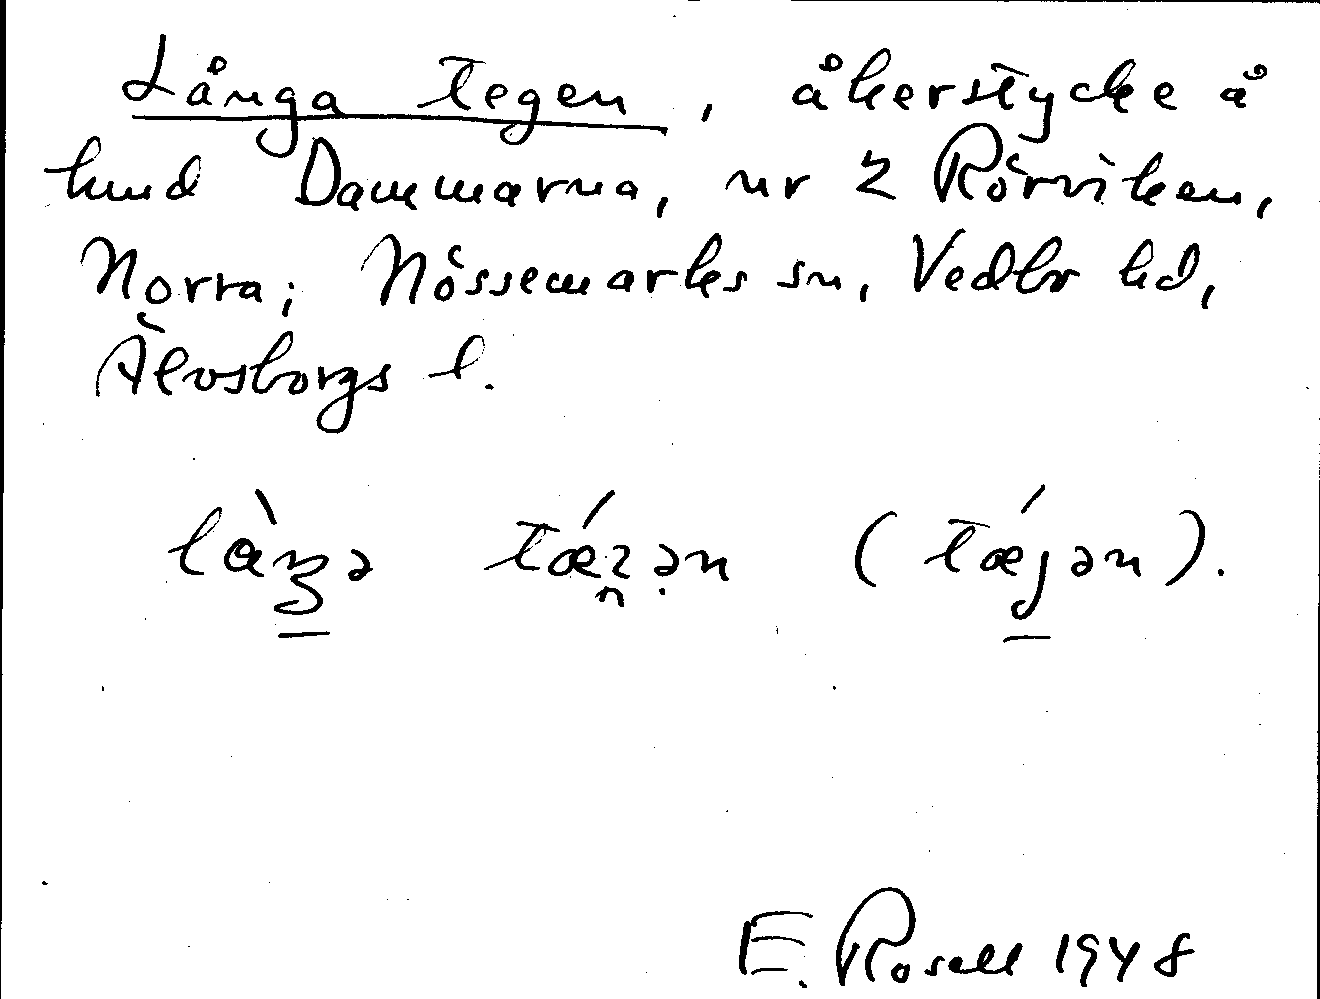 Långa tegen, åkerstycke å
hmd Dammarna, nr 2 Rörviken,
Norra; Nössemarks sn, Vedbo hd,
Älvsborgs l.
E. Rosell 1948